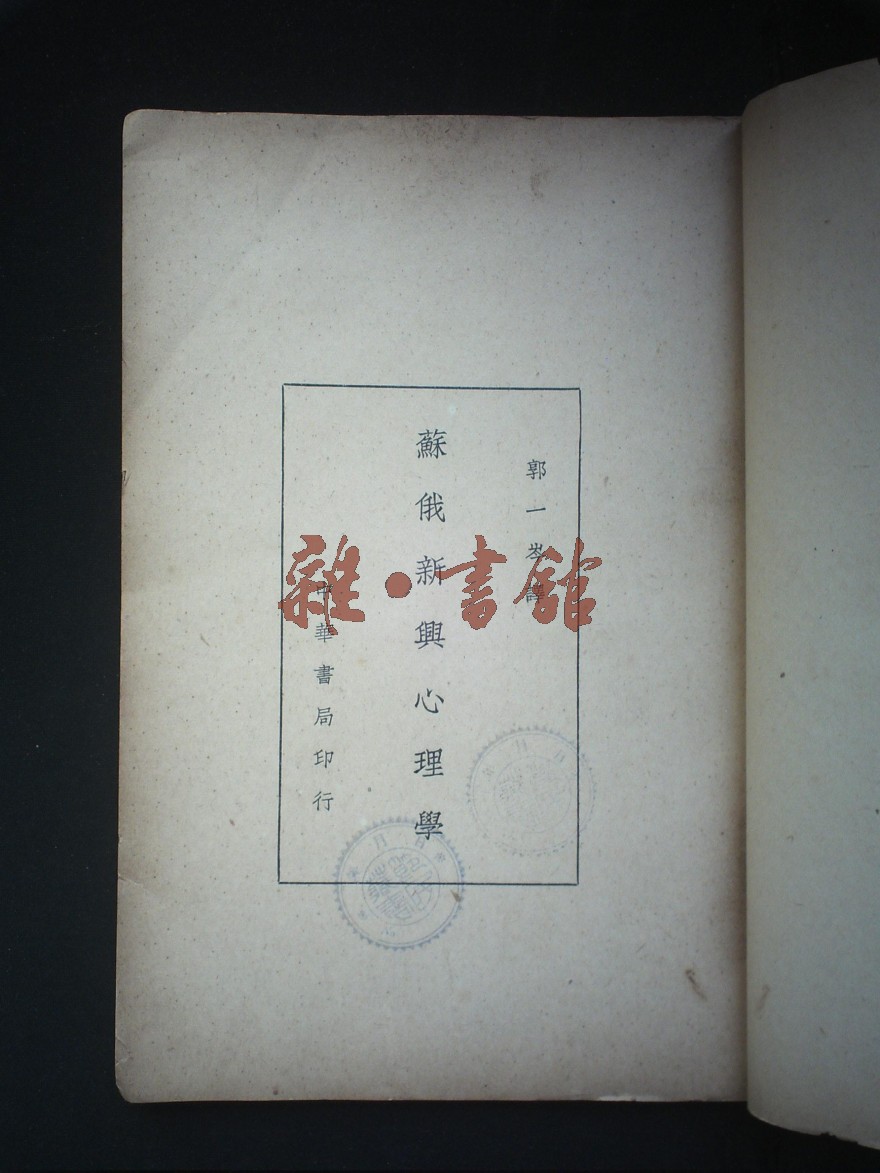 郭一岑譯
蘇俄新興心理學
中華書局印行
雜·書館